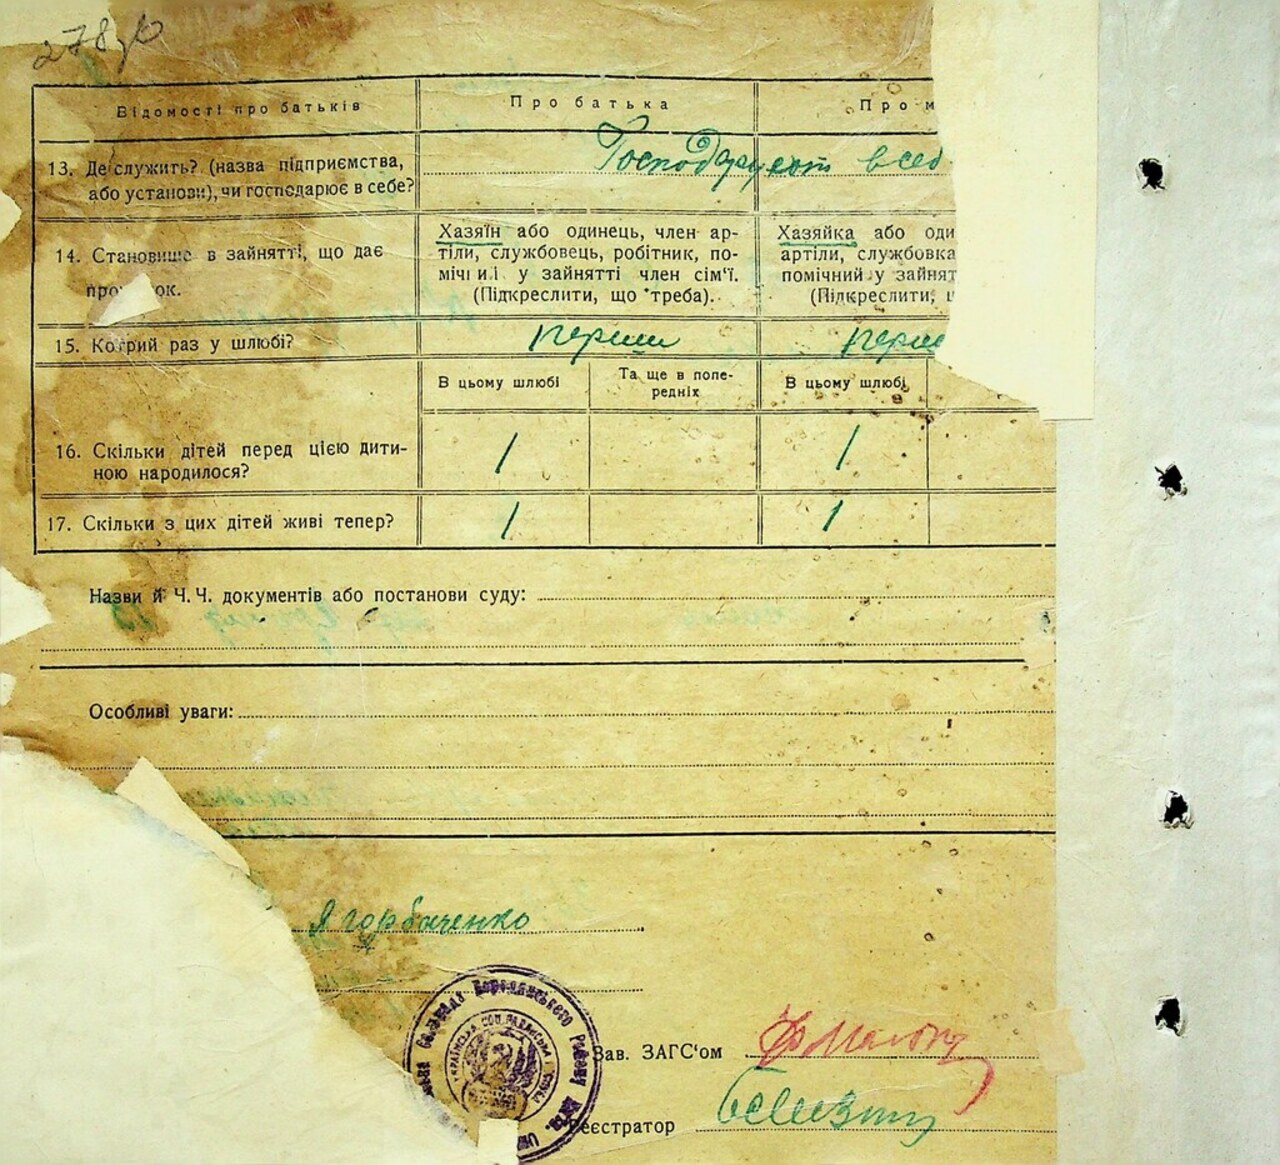 278
Відомості про батьків
Про батька
Про м
13. Де служить? (назва підприємства,
або установи), чи господарює в себе?
Господарують в себ
14. Становище в зайнятті, що дає
про ок.
Хазяїн або одинець, член ар-
тілі, службовець, робітник, по-
мічний у зайнятті член сім'ї.
(Підкреслити, що треба).
Хазяйка або оди
артіли, службовка
помічний у зайнят
(Підкреслити, щ
15. Котрий раз у шлюбі?
перший
перш
В цьому шлюбі
Та ще в попе-
редніх
В цьому шлюбі
16. Скільки дітей перед цією дити-
ною народилося?
1
1
17. Скільки з цих дітей живі тепер?
1
1
Назви й Ч.Ч. документів або постанови суду:
Особливі уваги:
Я Горбаченко
Сільрада Бородянського Району
УКРАЇНСЬКА СОЦ. РАДЯНСЬКА
Зав. ЗАГС'ом
Реєстратор